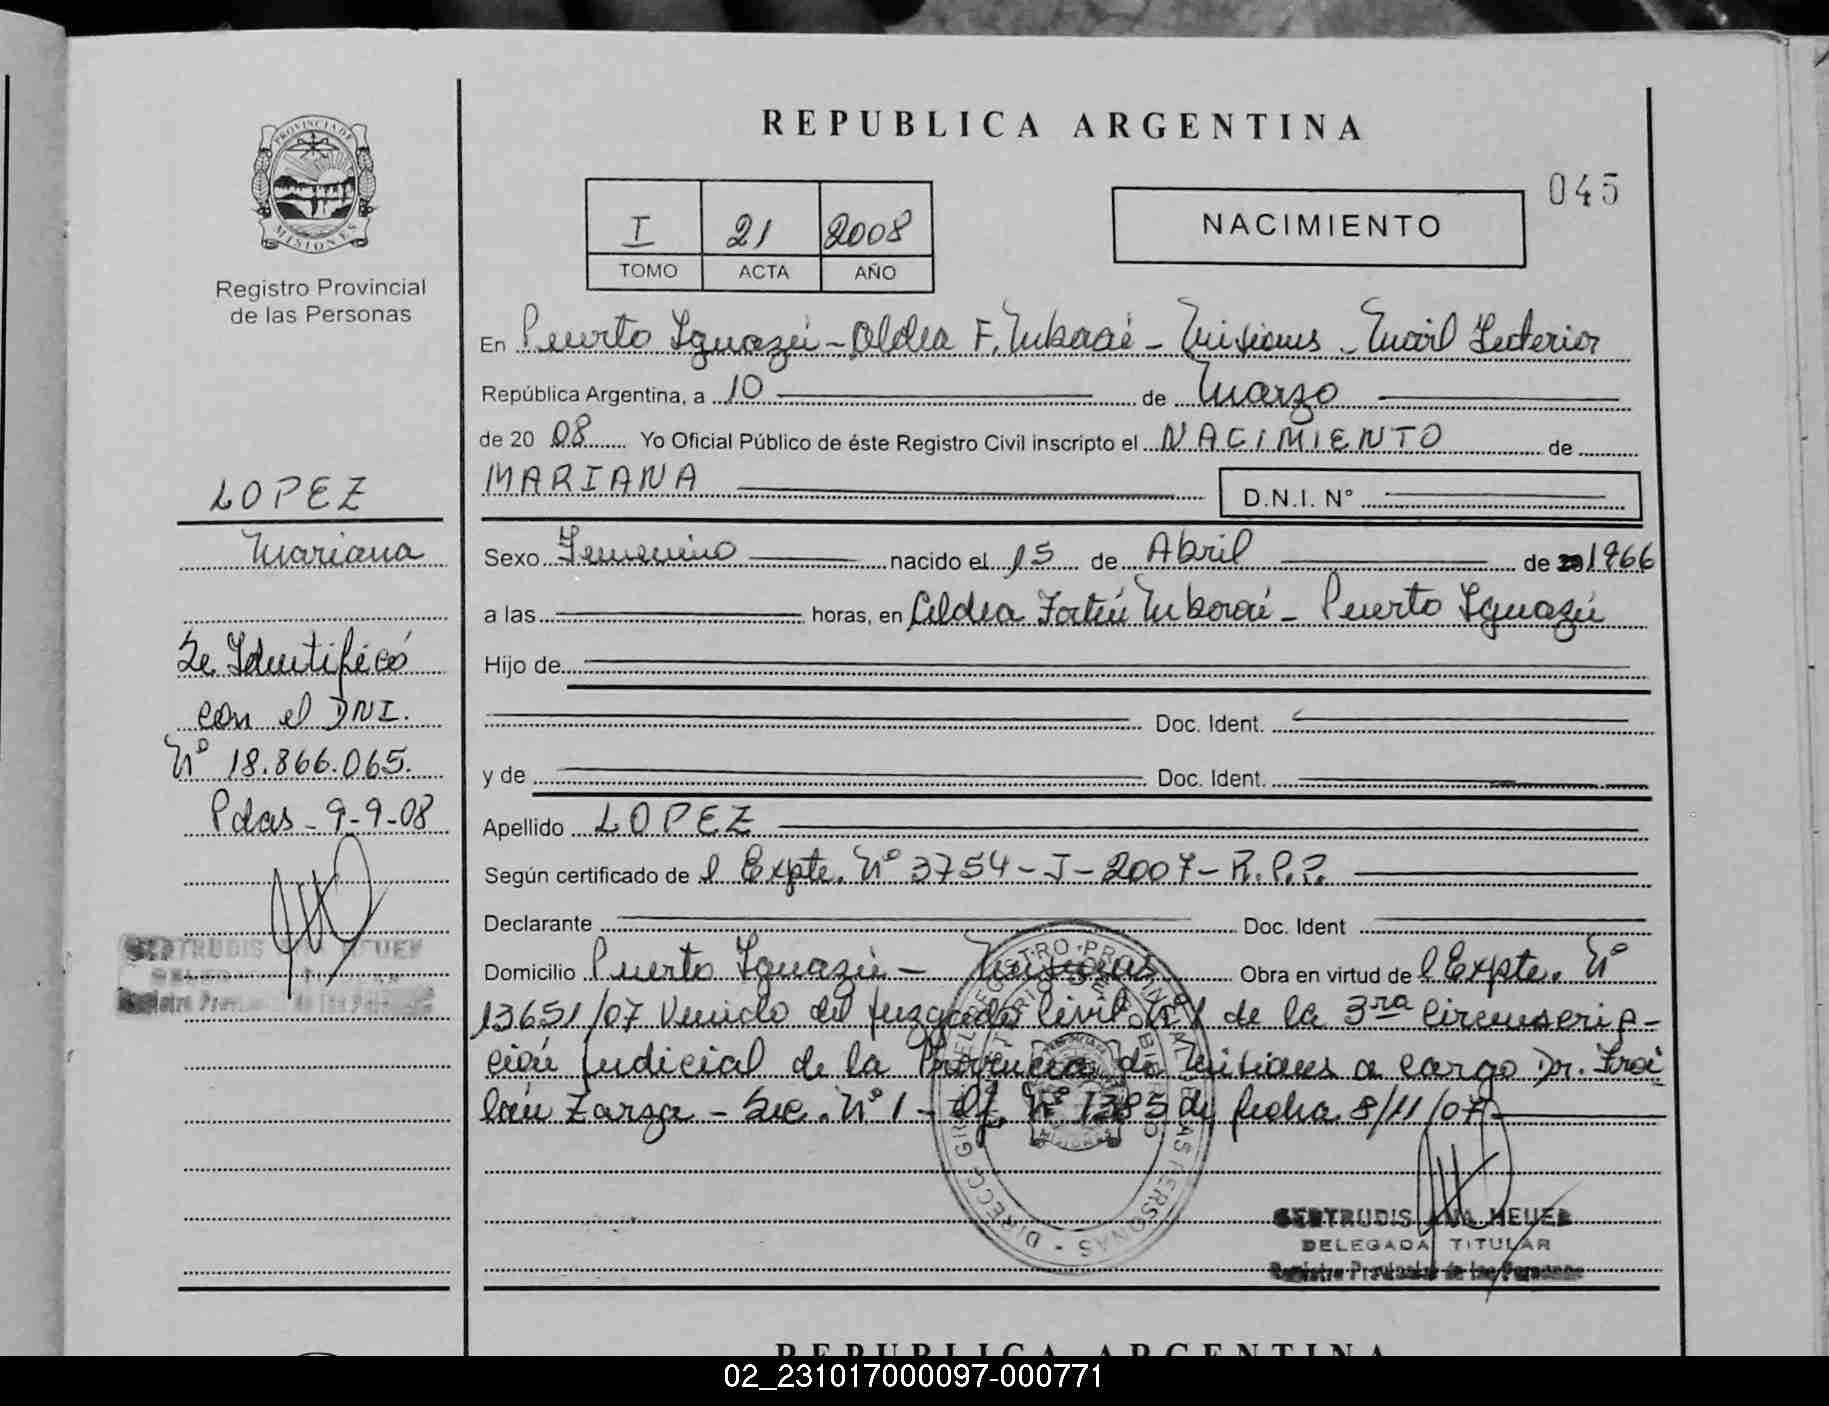 REPUBLICA ARGENTINA
045
PROVINCIA DE
MISIONES
Registro Provincial
de las Personas
I 21 2008
TOMO ACTA AÑO
NACIMIENTO
En Puerto Iguazú - Aldea F. Mbororé - Misiones
República Argentina, a 10 de Marzo
de 20 08 Yo Oficial Público de éste Registro Civil inscripto el NACIMIENTO de
MARIANA
D.N.I. N°
LOPEZ
Mariana
Se Identificó
con el DNI.
Nº 18.866.065.
Pdas - 9-9-08
GERTRUDIS ANA HEUER
DELEGADA TITULAR
Registro Provincial de las Personas
Sexo Femenino nacido el 15 de Abril de 1966
a las horas, en Aldea Fortín Mbororé - Puerto Iguazú
Hijo de
Doc. Ident.
y de Doc. Ident.
Apellido LOPEZ
Según certificado de l Expte. Nº 3754-J-2007-R.P.P.
Declarante Doc. Ident
Domicilio Puerto Iguazú - Misiones Obra en virtud de l Expte. Nº
13651/07 Venido del Juzgado Civil Nº 1 de la 3ra Circunscrip-
ción Judicial de la Provincia de Misiones a cargo Dr. Froi
lán Zarza - Sec. Nº 1 - Of. Nº 1385 de fecha 8/11/07
GERTRUDIS ANA HEUER
DELEGADA TITULAR
Registro Provincial de las Personas
REPUBLICA ARGENTINA
02_231017000097-000771